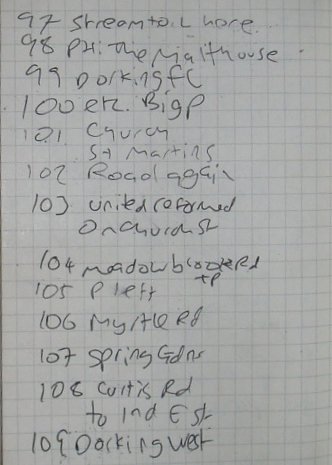 97 Stream to L hore
98 PH: the Malthouse
99 Dorking FC
100 etc. Big P
101 Church
St Martins
102 Road again
103 united reformed
On Church St
104 meadowbrook Rd
+P
105 P left
106 Myrtle Rd
107 Spring Gdns
108 Curtis Rd
to Ind Est
109 Dorking West